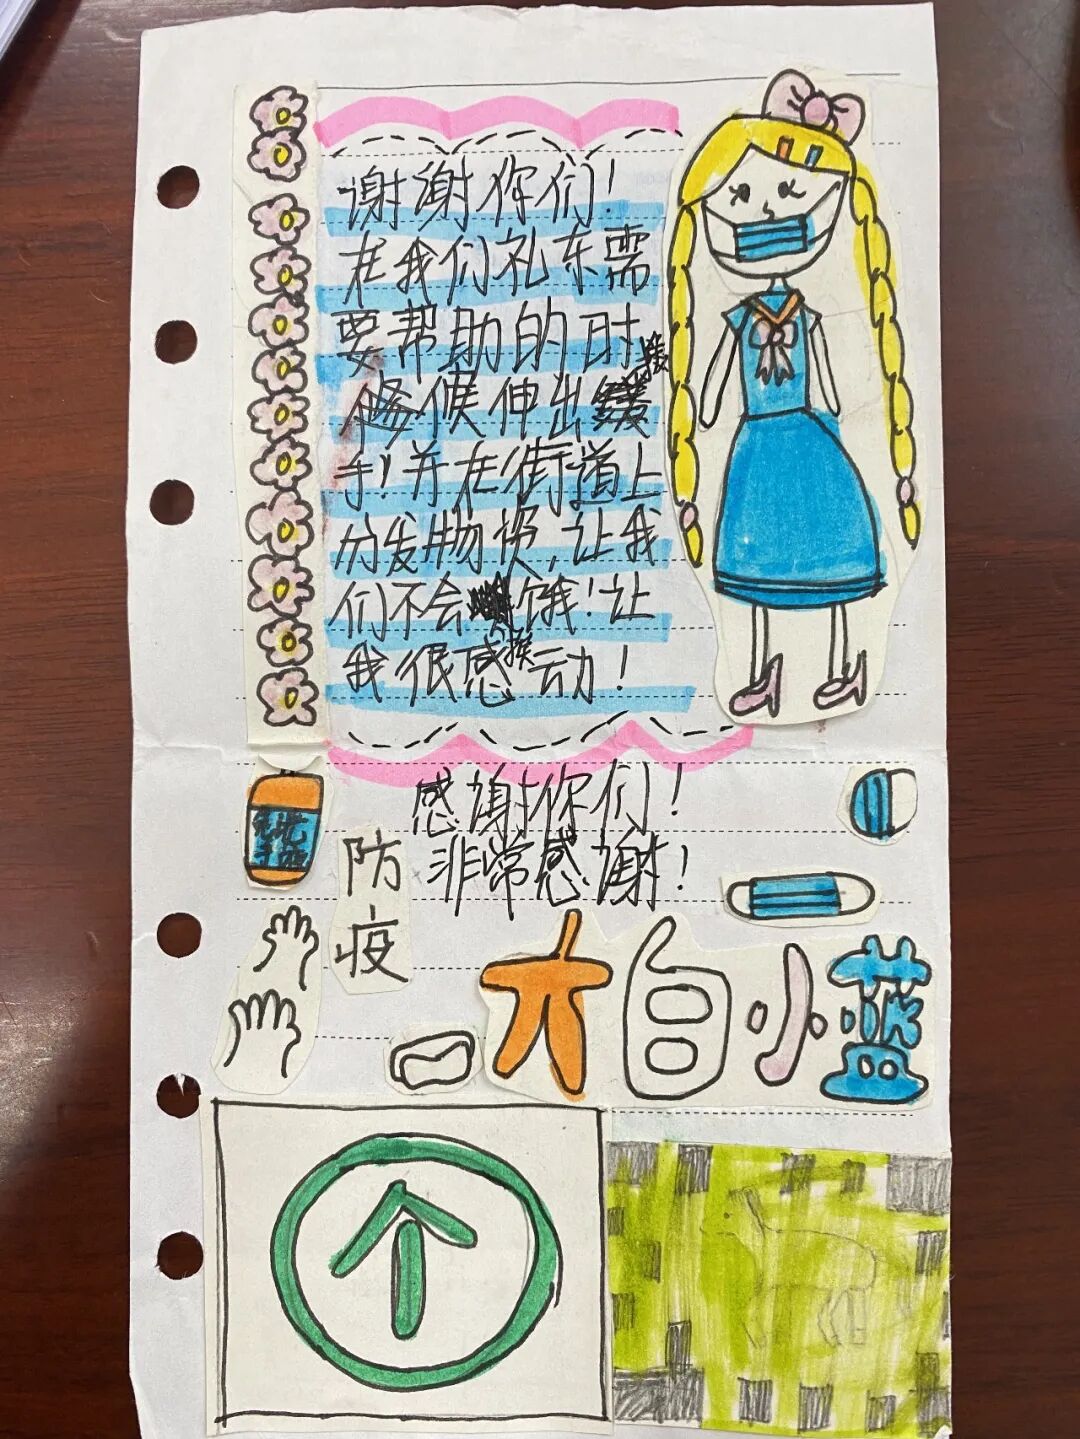 谢谢你们！
在我们礼东需
要帮助的时
候伸出援
手！并在街道上
分发物资，让我
们不会饿！让
我很感动！
感谢你们！
非常感谢！
免洗
手液
防
疫
大白小蓝